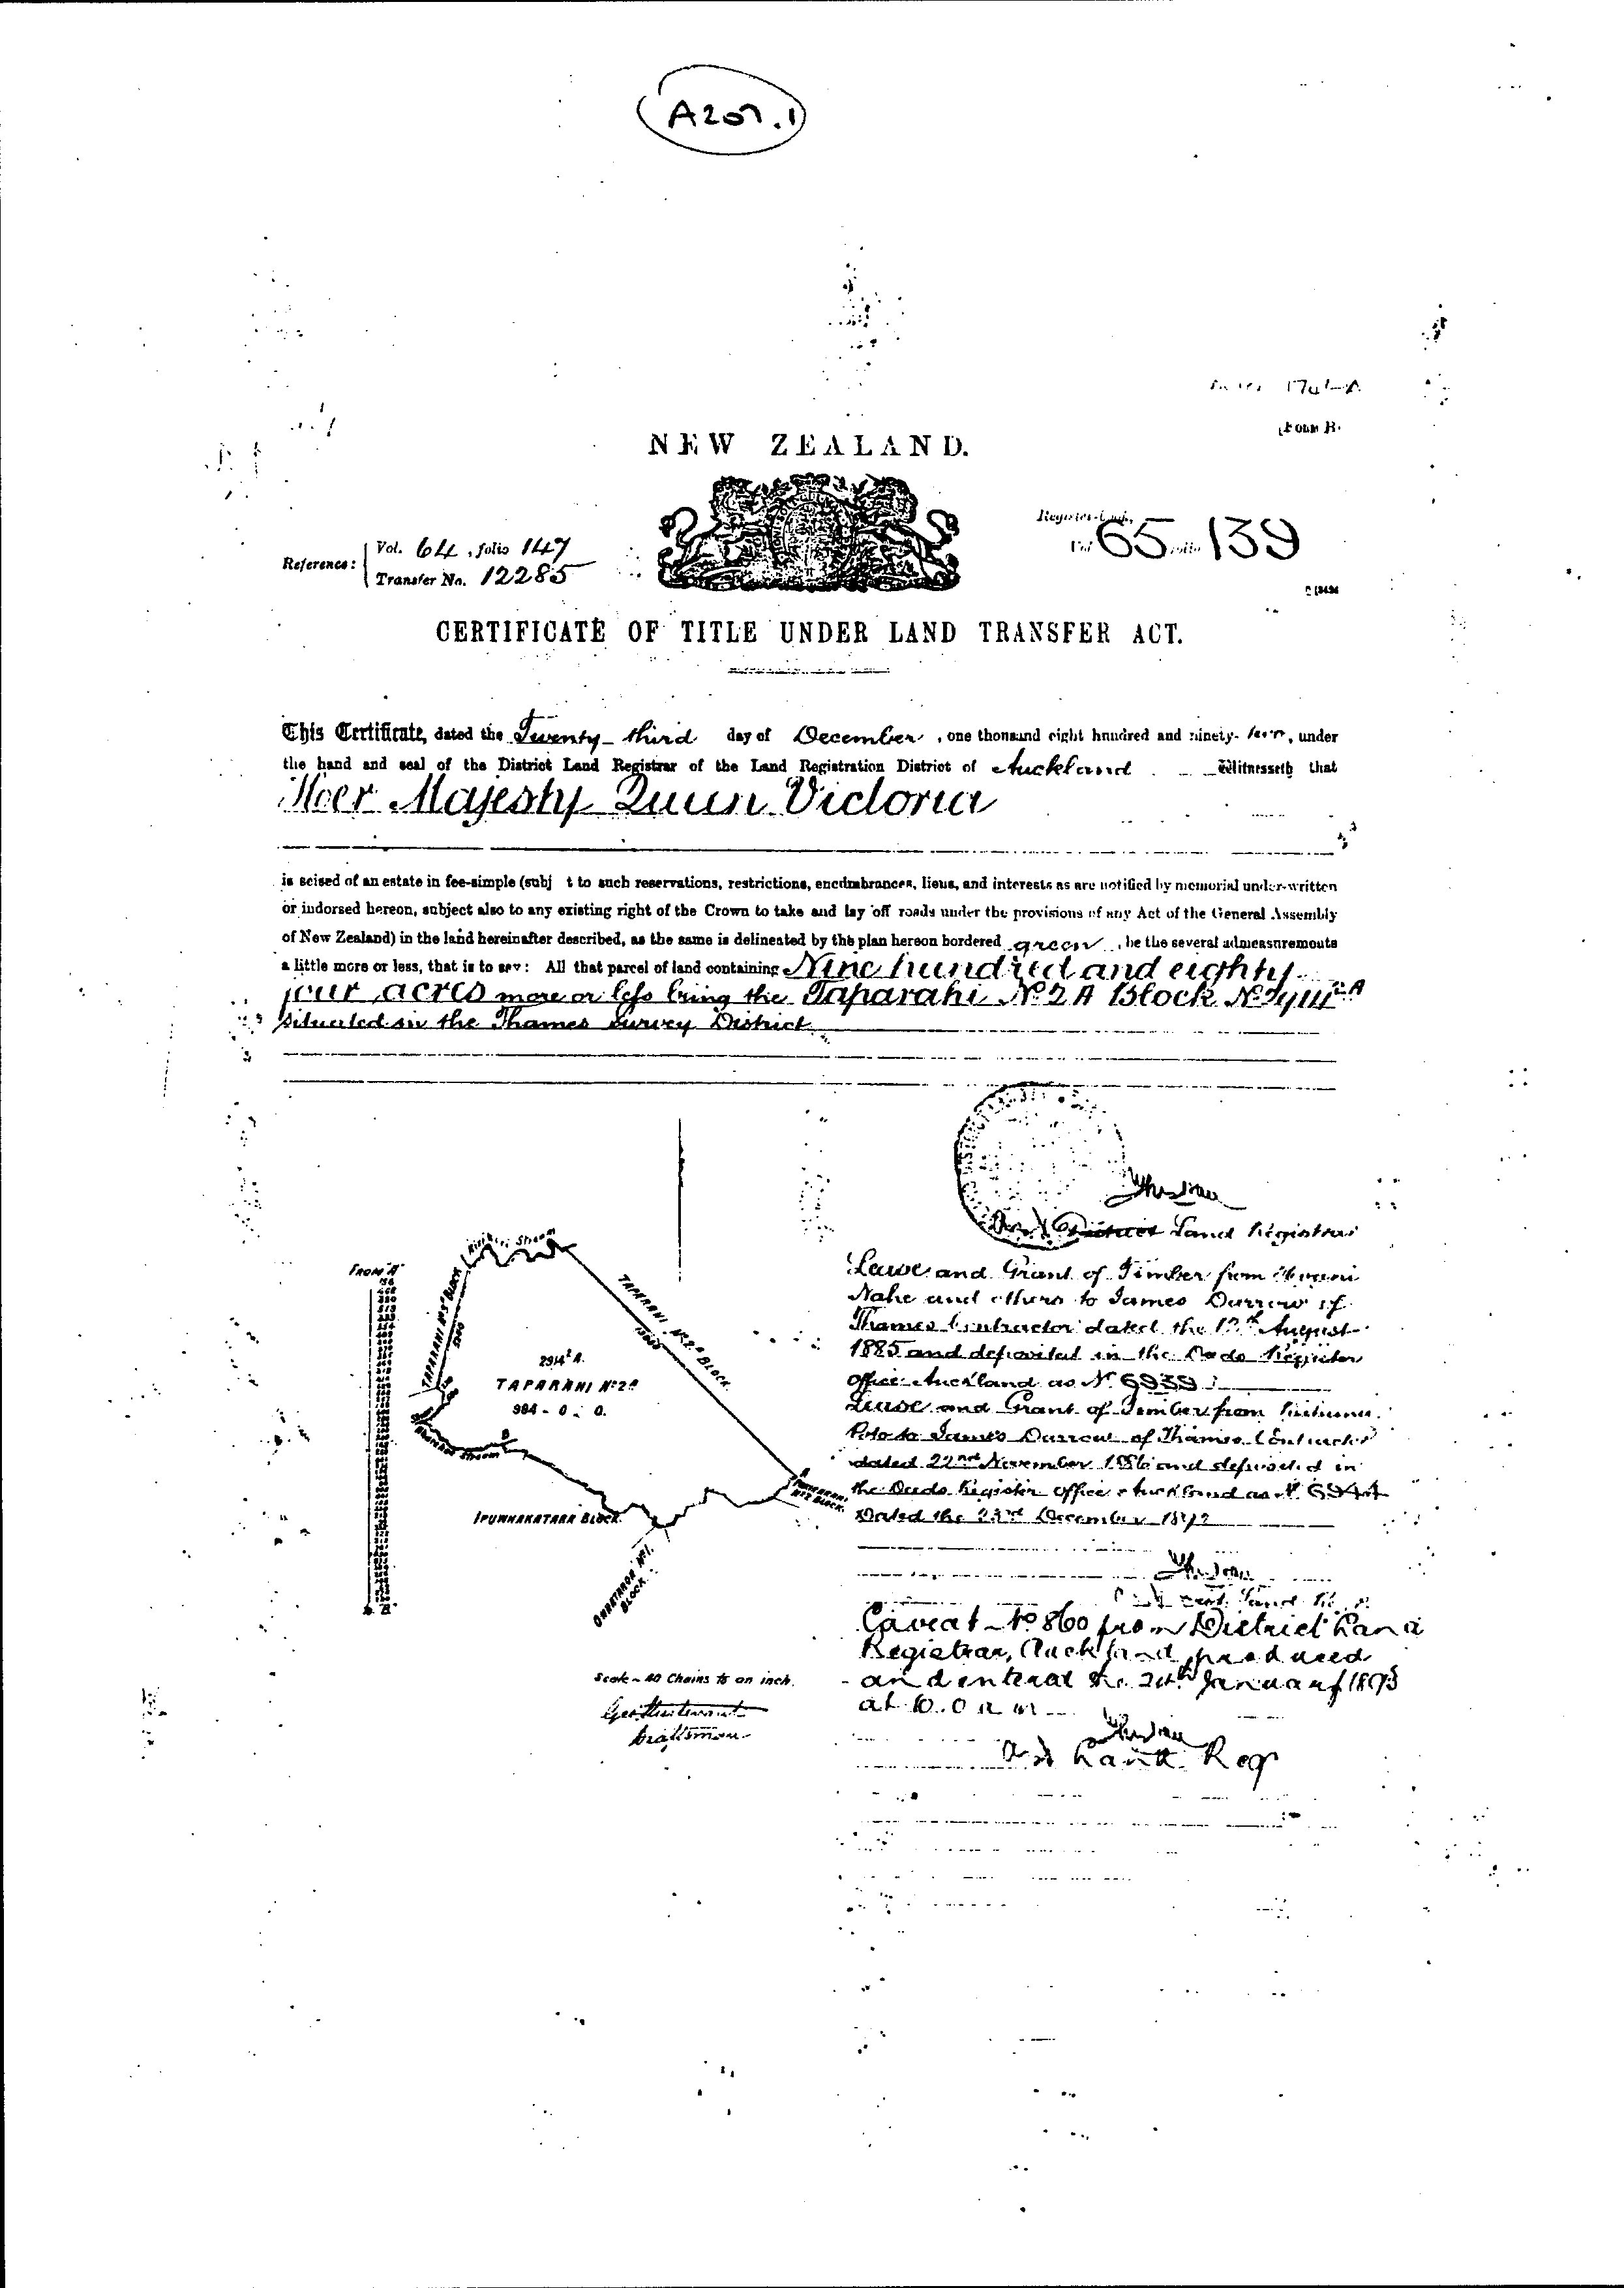 A207.1
FORM B.
NEW ZEALAND.
Register-book,
Vol. 65 folio 139
Reference: Vol. 64, folio 147
Transfer No. 12285
CERTIFICATE OF TITLE UNDER LAND TRANSFER ACT.
This Certificate, dated the Twenty-third day of December, one thousand eight hundred and ninety-, under
the hand and seal of the District Land Registrar of the Land Registration District of Auckland Witnesseth that
Her Majesty Queen Victoria
is seised of an estate in fee-simple (subj t to such reservations, restrictions, encumbrances, liens, and interests as are notified by memorial under-written
or indorsed hereon, subject also to any existing right of the Crown to take and lay off roads under the provisions of any Act of the General Assembly
of New Zealand) in the land hereinafter described, as the same is delineated by the plan hereon bordered green, be the several admeasurements
a little more or less, that is to say: All that parcel of land containing Nine hundred and eighty
four acres more or less being the Taparahi No 2A Block No
situated in the Thames Survey District
District Land Registrar
Lease and Grant of Timber from
Nahe and others to James Darrow of
Thames Contractor dated the August
1885 and deposited in the Deeds Register
Office Auckland as No 6939
Lease and Grant of Timber from
Poto to James Darrow of Thames Contractor
dated 22nd November 1886 and deposited in
the Deeds Register Office Auckland as No
Dated the 23rd December 1892
Land
Caveat No 860 from District Land
Registrar, Auckland, produced
and entered the 24th January 1893
at 10.0 a m
Land Reg
FROM A
Stream
TAPARAHI BLOCK
TAPARAHI No 2 BLOCK
2914 A.
TAPARAHI No 2A
984 - 0 - 0.
Stream
IPUWHAKATARA BLOCK
BLOCK.
No 1. BLOCK
Scale - 40 Chains to an inch.
Draftsman